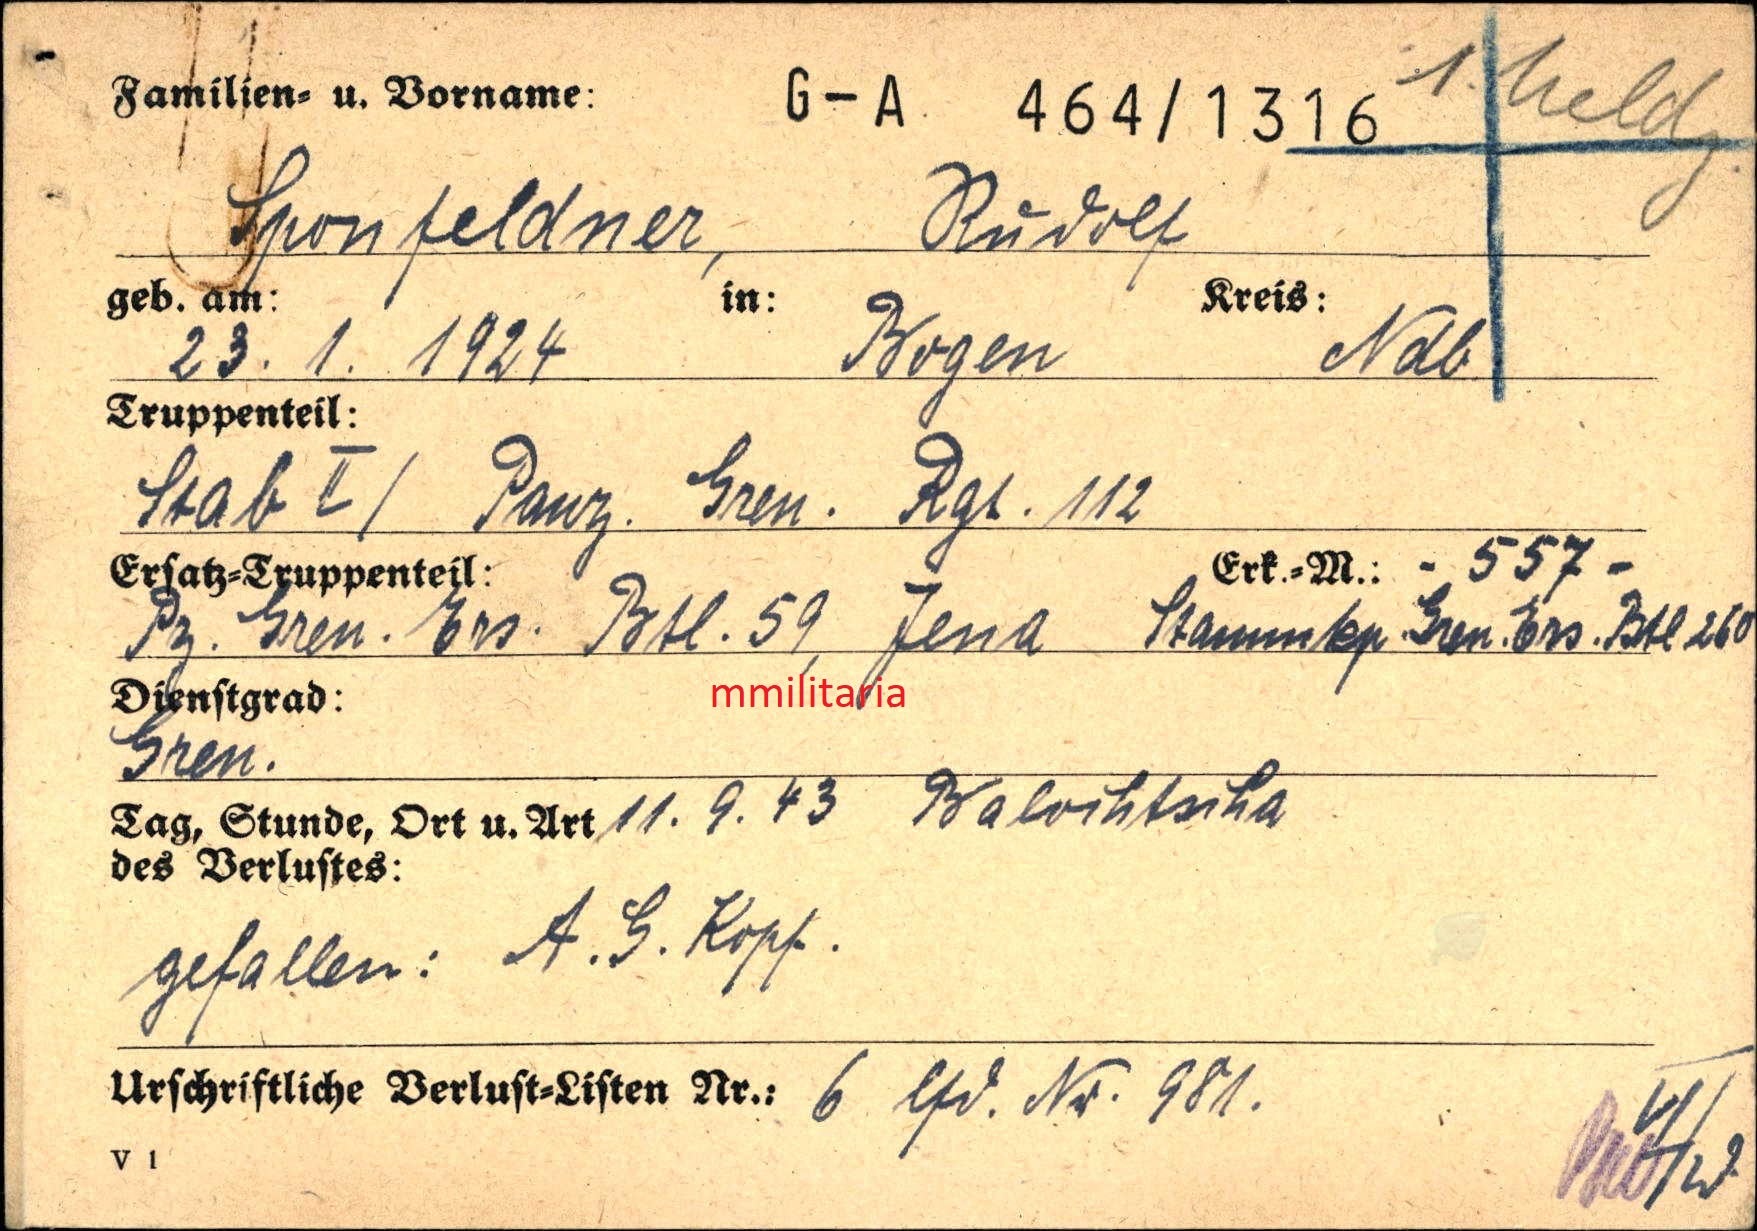 Familien- u. Vorname: G-A 464/1316 1. Meldg.
Sponfeldner, Rudolf
geb. am: in: Kreis:
23. 1. 1924 Bogen Ndb
Truppenteil:
Stab II / Panz. Gren. Rgt. 112
Ersatz-Truppenteil: Erk.-M.: - 557 -
Pz. Gren. Ers. Btl. 59, Jena Stammkp. Gren. Ers. Btl 260
Dienstgrad:
mmilitaria
Gren.
Tag, Stunde, Ort u. Art 11. 9. 43
des Verlustes:
gefallen: A. G. Kopf.
Urschriftliche Verlust-Listen Nr.: 6 lfd. Nr. 981.
V 1